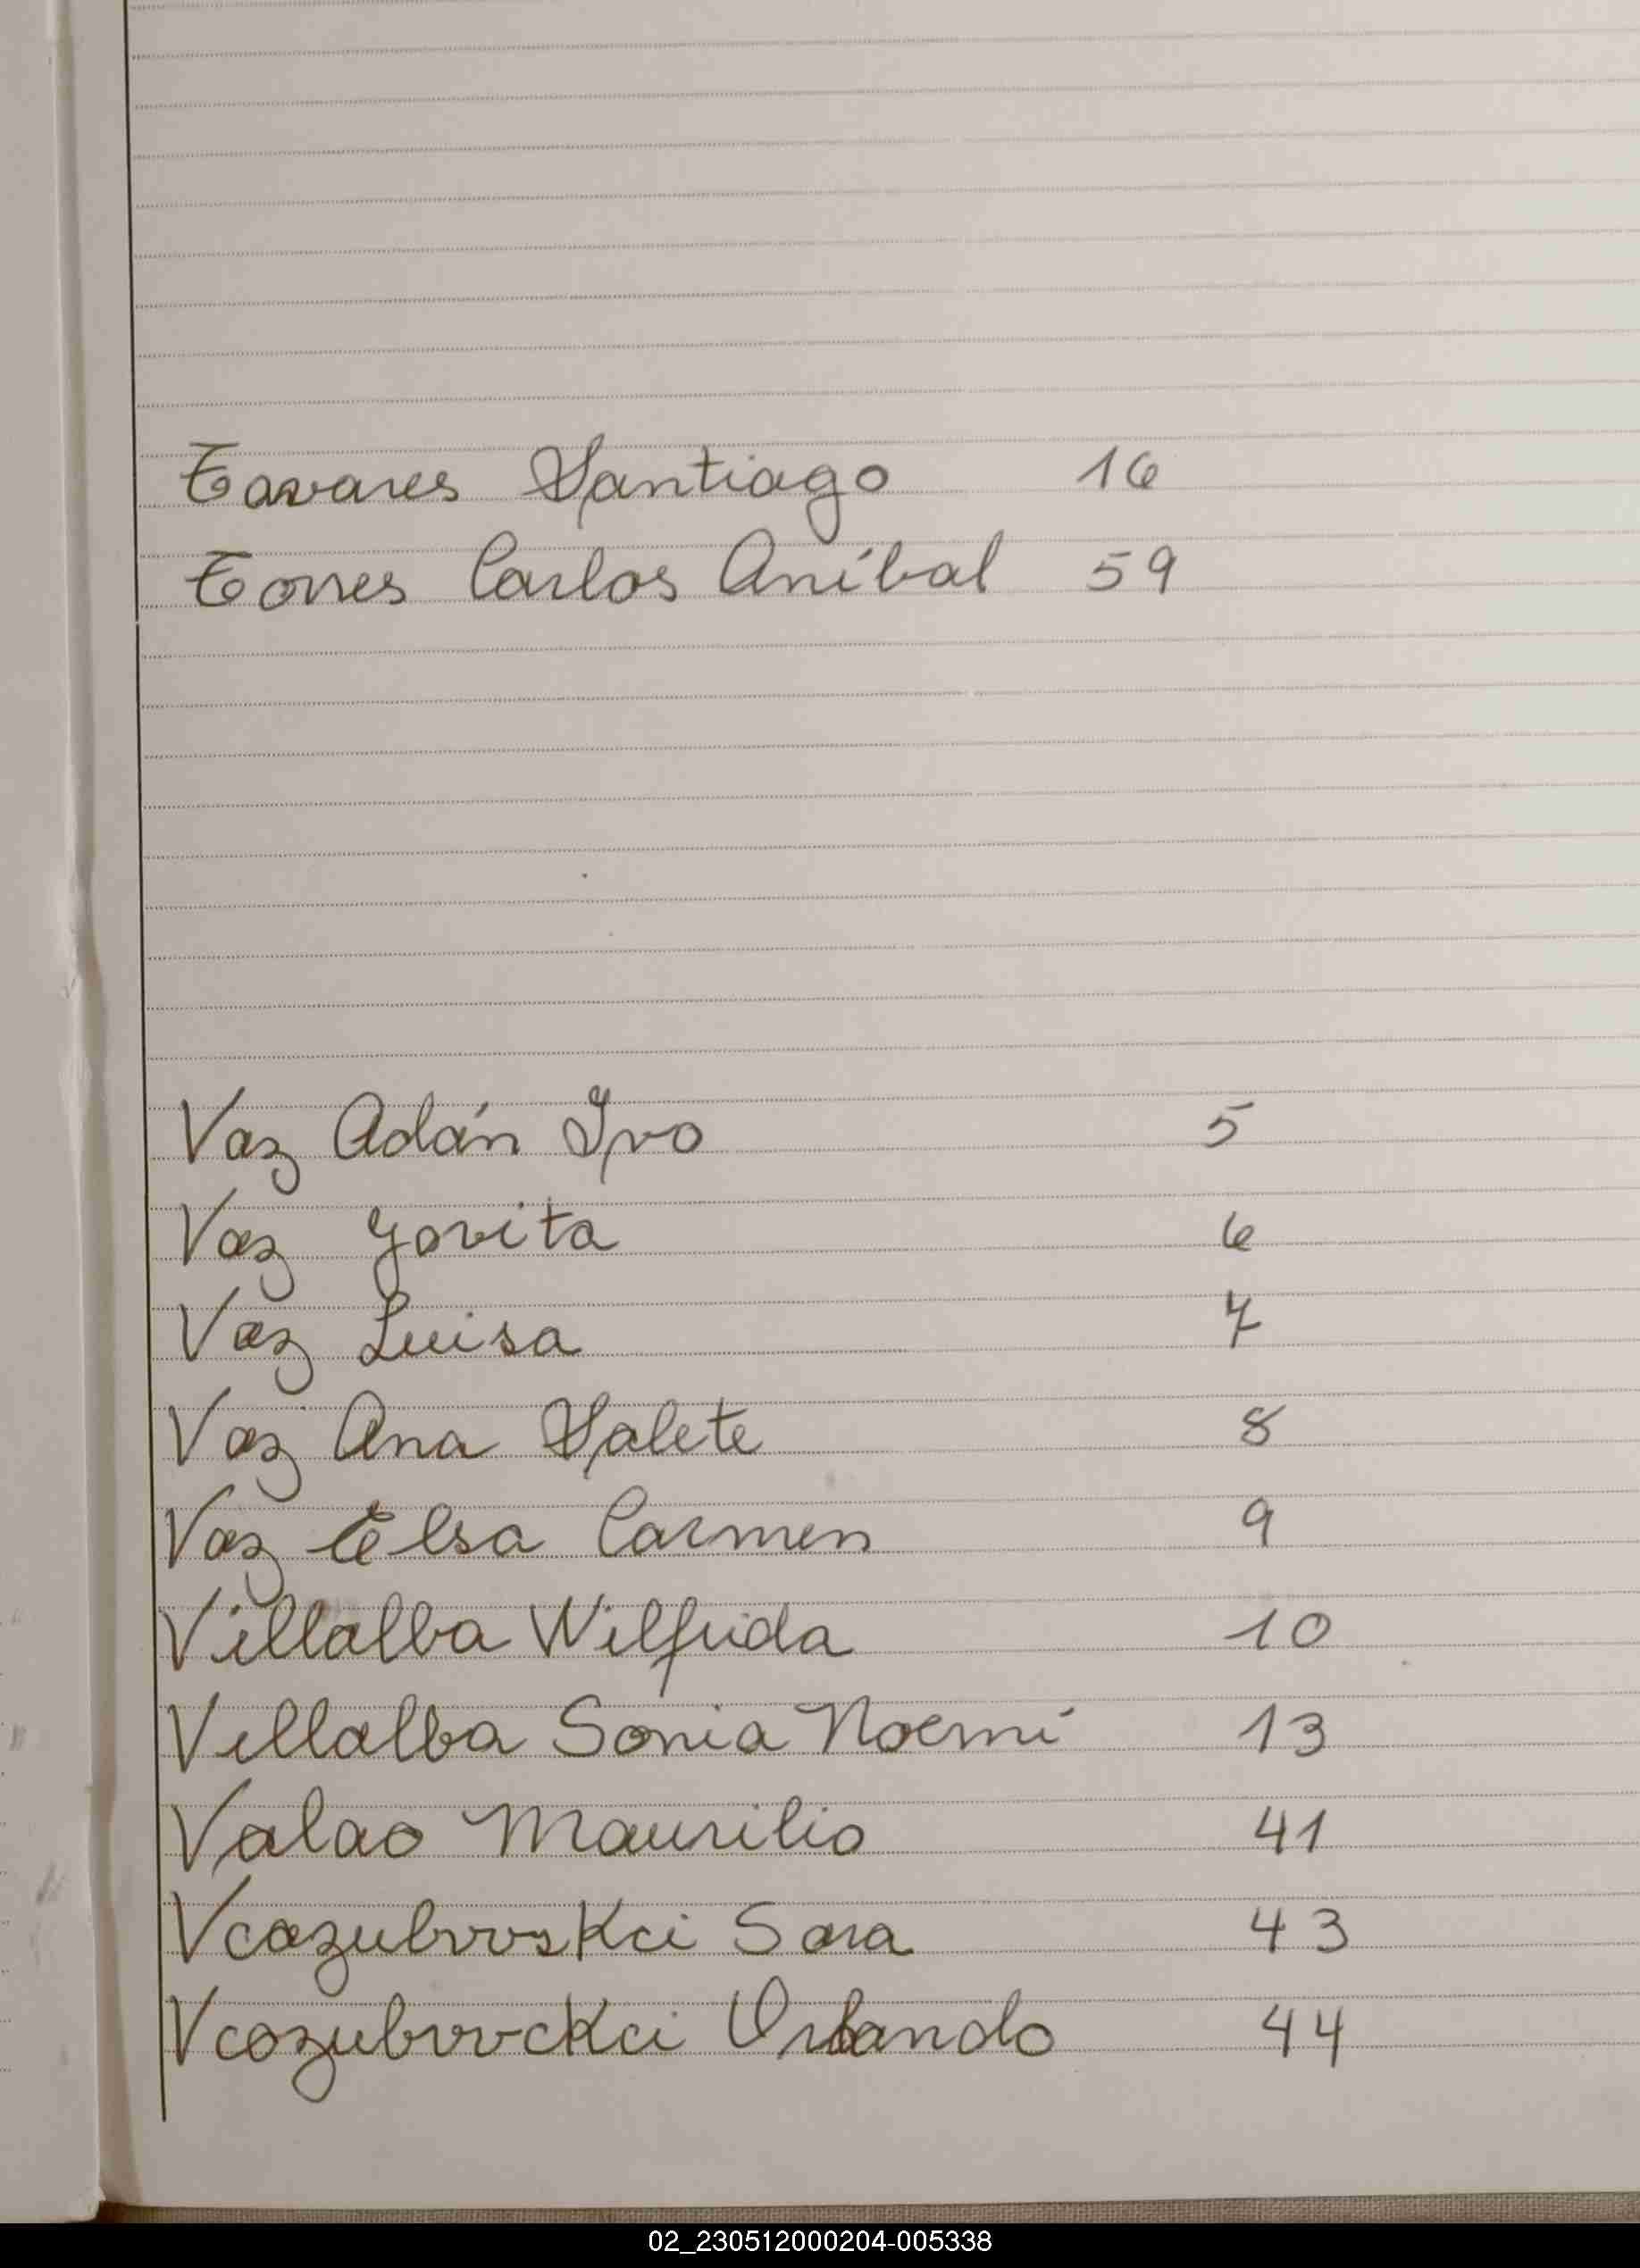 Tavares Santiago 16
Torres Carlos Aníbal 59
Vaz Adán Ivo 5
Vaz Jovita 6
Vaz Luisa 7
Vaz Ana Salete 8
Vaz Elsa Carmen 9
Villalba Wilfrida 10
Villalba Sonia Noemí 13
Valao Maurilio 41
Vcazubvvskci Sara 43
Vcozubvvckci Orlando 44
02_230512000204-005338